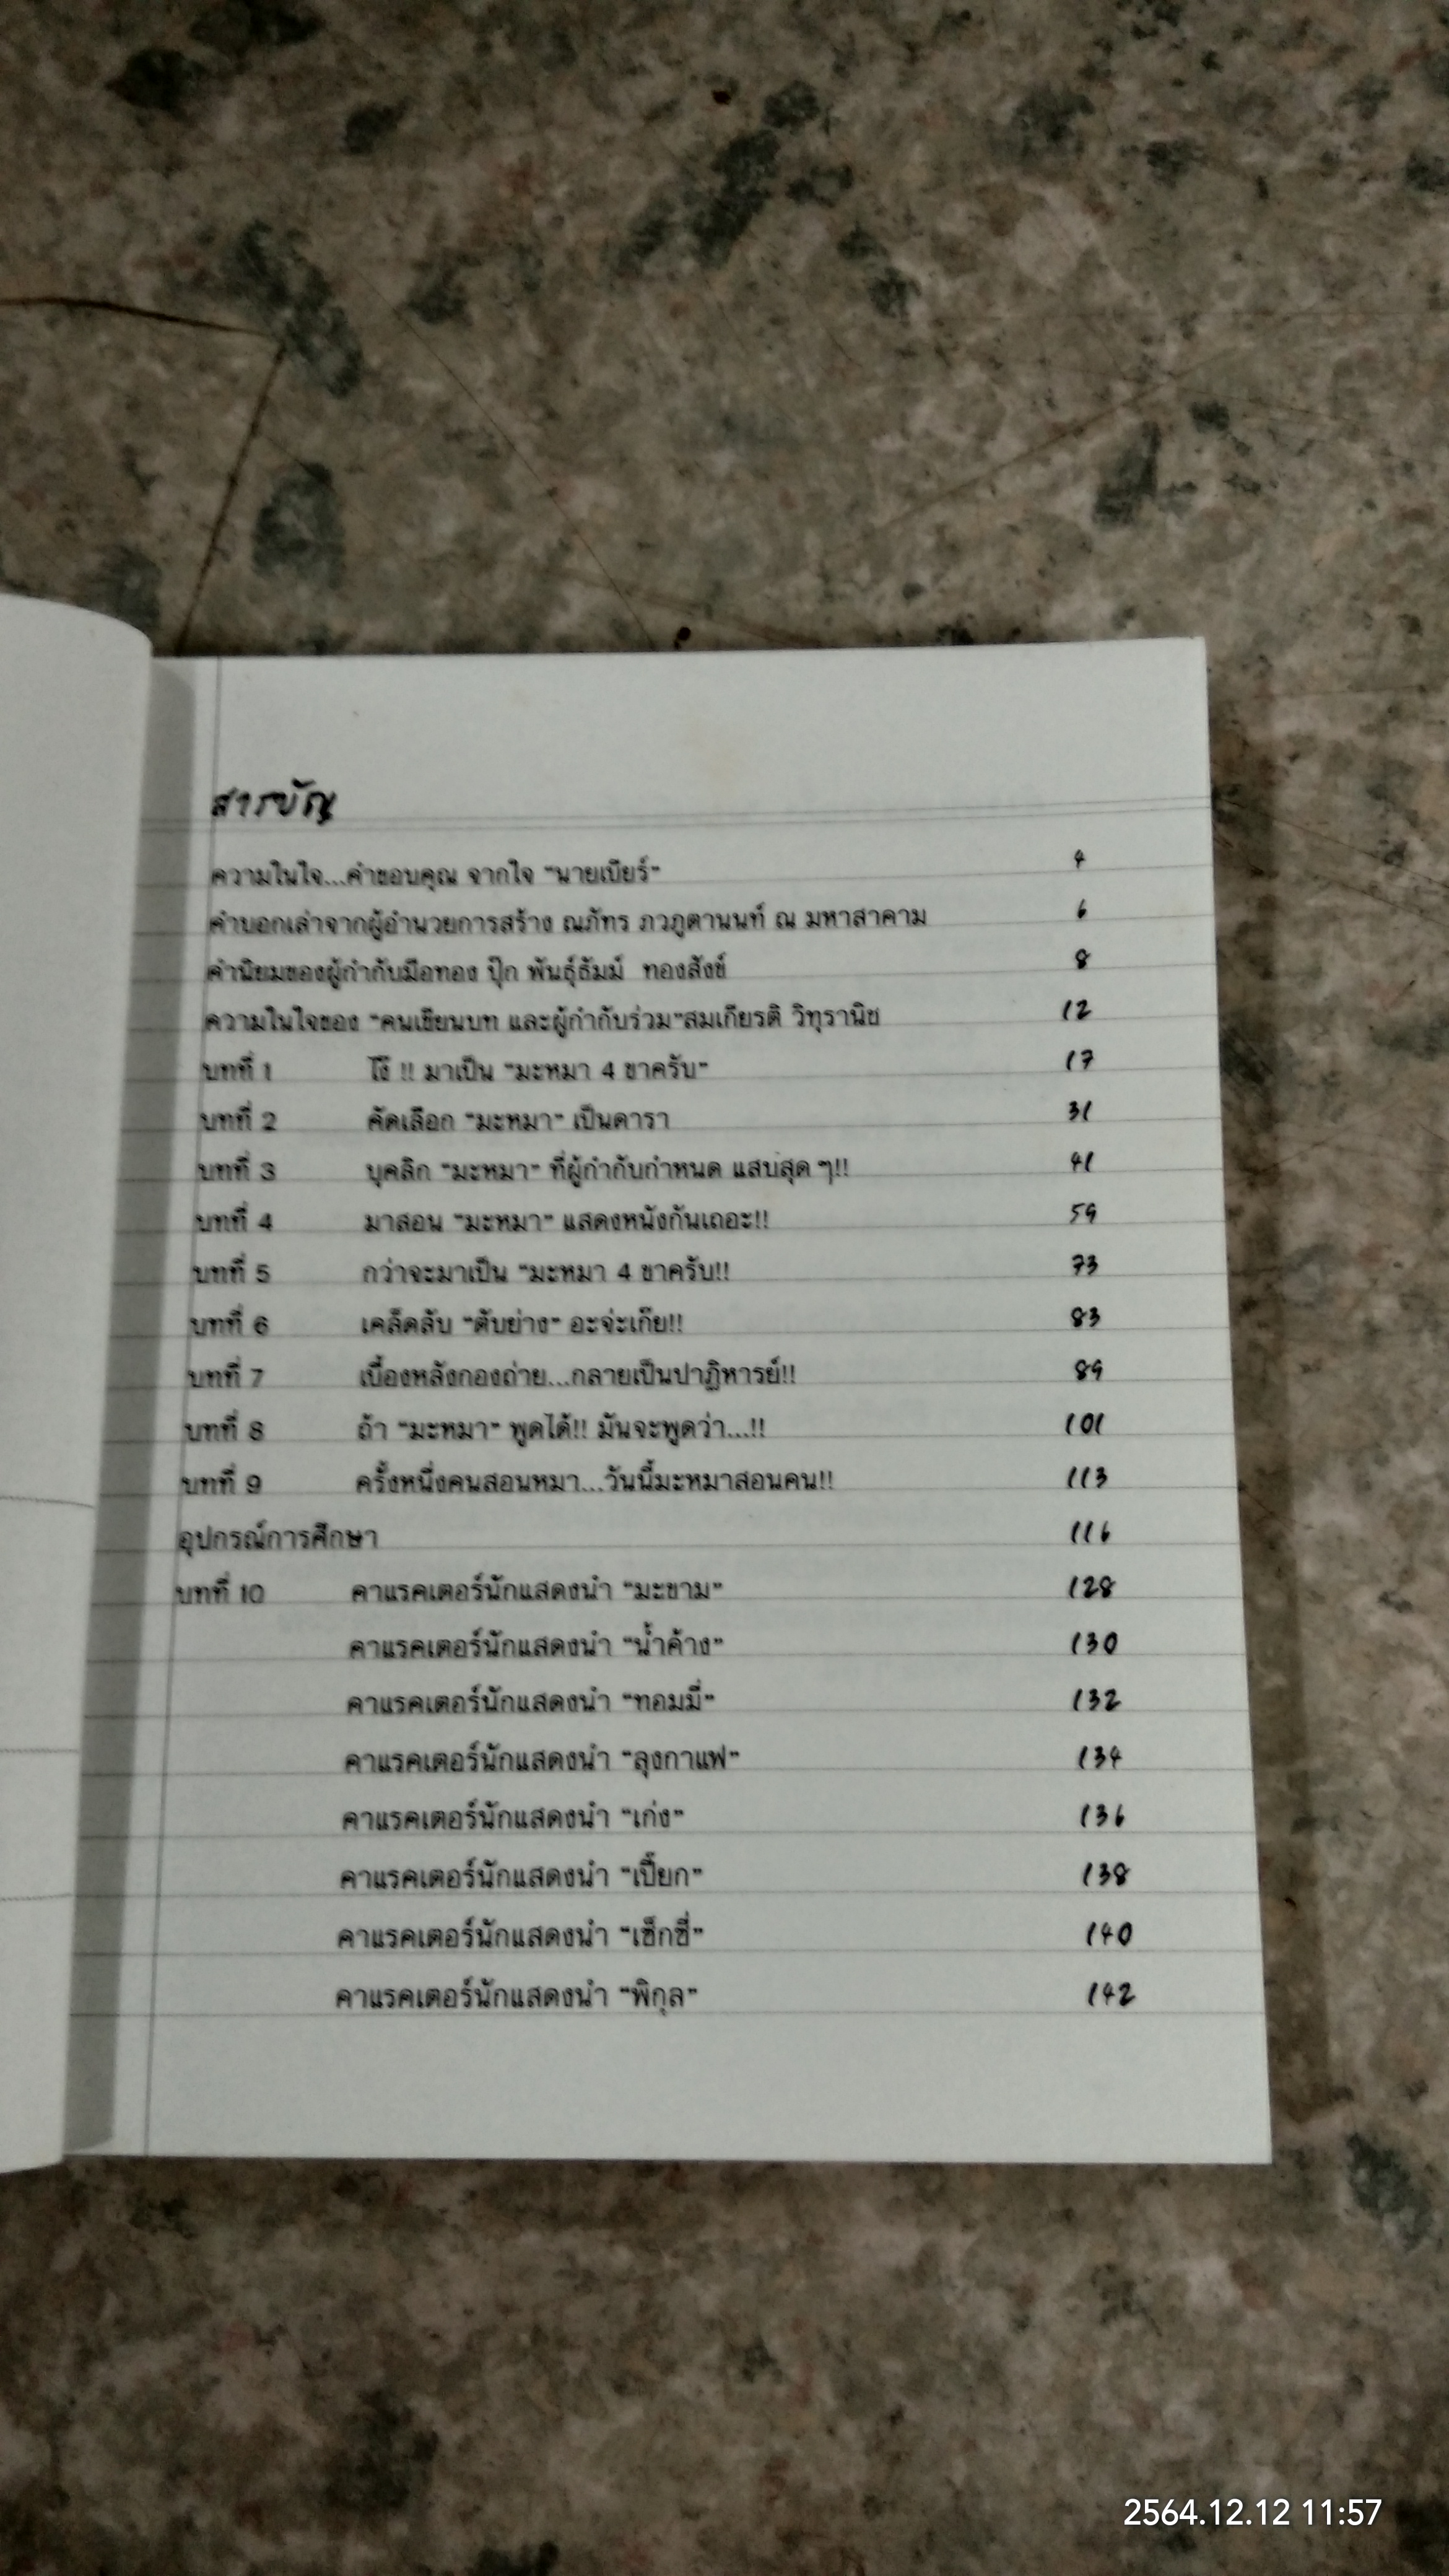 สารบัญ
ความในใจ...คำขอบคุณ จากใจ "นายเบียร์" 4
คำบอกเล่าจากผู้อำนวยการสร้าง ณภัทร ภวภูตานนท์ ณ มหาสาคาม 6
คำนิยมของผู้กำกับมือทอง ปุ๊ก พันธุ์ธัมม์ ทองสังข์ 8
ความในใจของ "คนเขียนบท และผู้กำกับร่วม"สมเกียรติ วิทุรานิช 12
บทที่ 1 โง้ !! มาเป็น "มะหมา 4 ขาครับ" 17
บทที่ 2 คัดเลือก "มะหมา" เป็นดารา 31
บทที่ 3 บุคลิก "มะหมา" ที่ผู้กำกับกำหนด แสบสุด ๆ!! 41
บทที่ 4 มาสอน "มะหมา" แสดงหนังกันเถอะ!! 59
บทที่ 5 กว่าจะมาเป็น "มะหมา 4 ขาครับ!! 73
บทที่ 6 เคล็ดลับ "ตับย่าง" อะจ่ะเก๊ย!! 83
บทที่ 7 เบื้องหลังกองถ่าย...กลายเป็นปาฏิหารย์!! 89
บทที่ 8 ถ้า "มะหมา" พูดได้!! มันจะพูดว่า...!! 101
บทที่ 9 ครั้งหนึ่งคนสอนหมา...วันนี้มะหมาสอนคน!! 113
อุปกรณ์การศึกษา 116
บทที่ 10 คาแรคเตอร์นักแสดงนำ "มะขาม" 128
คาแรคเตอร์นักแสดงนำ "น้ำค้าง" 130
คาแรคเตอร์นักแสดงนำ "ทอมมี่" 132
คาแรคเตอร์นักแสดงนำ "ลุงกาแฟ" 134
คาแรคเตอร์นักแสดงนำ "เก่ง" 136
คาแรคเตอร์นักแสดงนำ "เปี๊ยก" 138
คาแรคเตอร์นักแสดงนำ "เซ็กซี่" 140
คาแรคเตอร์นักแสดงนำ "พิกุล" 142
2564.12.12 11:57